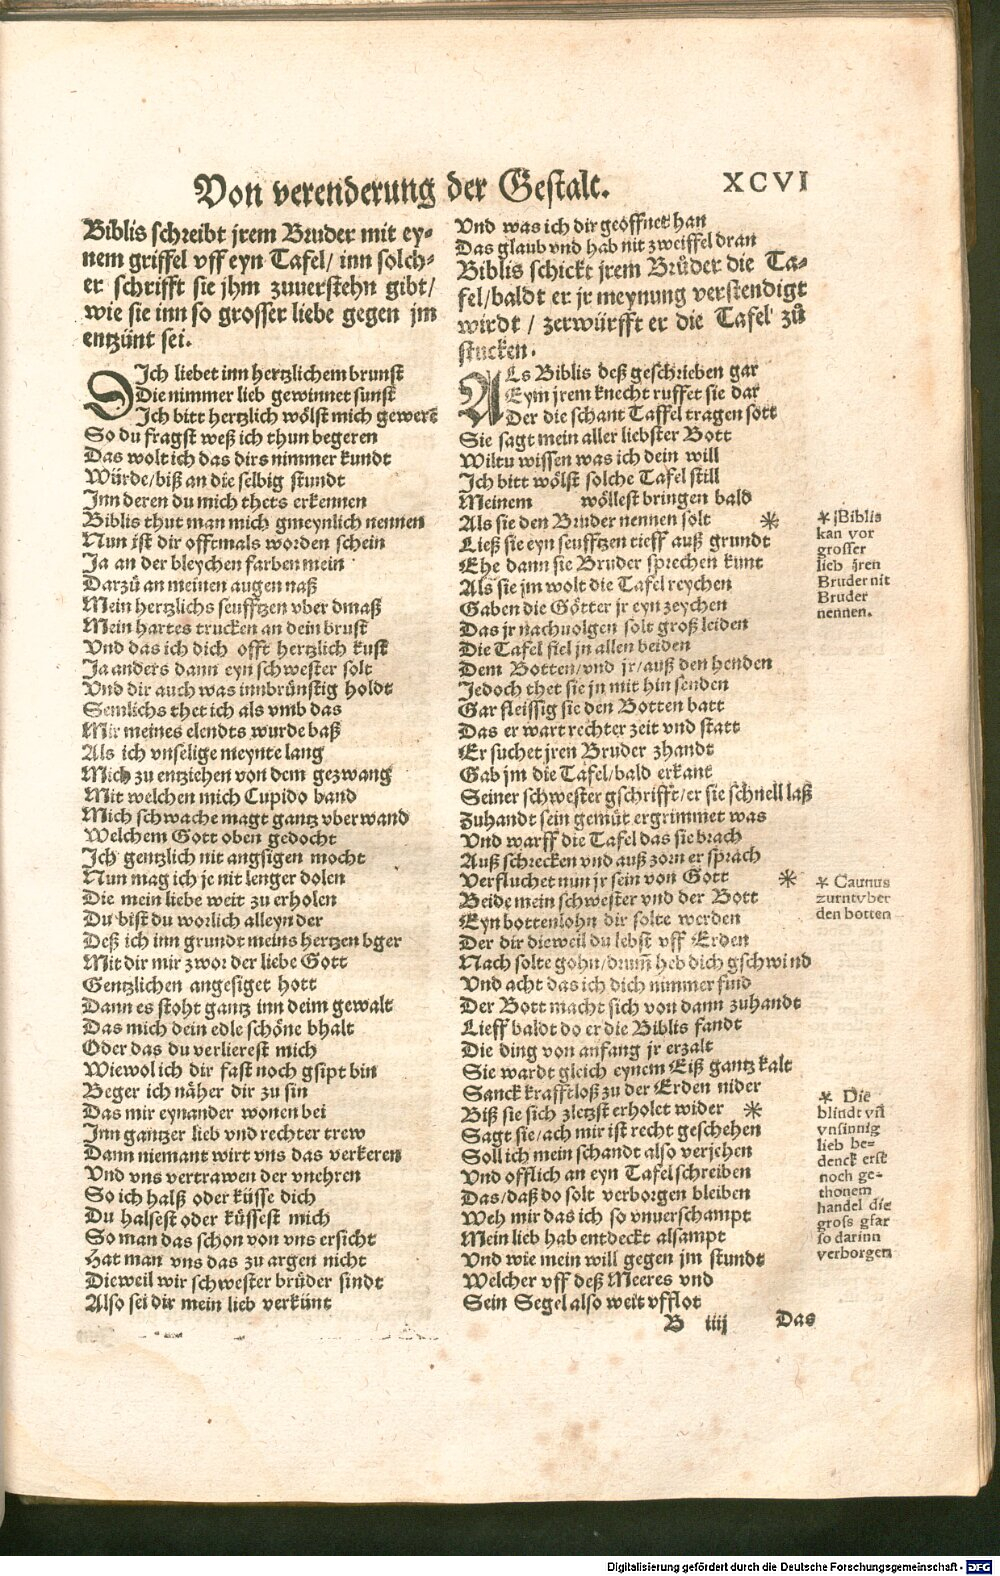 Von verenderung der Gestalt.
XCVI
Biblis schreibt jrem Bruder mit ey⸗
nem griffel vff eyn Tafel/ inn solch⸗
er schrifft sie jhm zuuerstehn gibt/
wie sie inn so grosser liebe gegen jm
entzünt sei.
DIch liebet inn hertzlichem brunst
Die nimmer lieb gewinnet sunst
Ich bitt hertzlich wölst mich gewerē
So du fragst weß ich thun begeren
Das wolt ich das dirs nimmer kundt
Würde/biß an die selbig stundt
Inn deren du mich thets erkennen
Biblis thut man mich gmeynlich nennen
Nun ist dir offtmals worden schein
Ja an der bleychen farben mein
Darzů an meinen augen naß
Mein hertzlichs seufftzen vber dmaß
Mein hartes trucken an dein brust
Vnd das ich dich offt hertzlich kust
Ja anders dann eyn schwester solt
Vnd dir auch was innbrünstig holdt
Semlichs thet ich als vmb das
Mir meines elendts wurde baß
Als ich vnselige meynte lang
Mich zu entziehen von dem gezwang
Mit welchen mich Cupido band
Mich schwache magt gantz vberwand
Welchem Gott oben gedocht
Ich gentzlich nit angsigen mocht
Nun mag ich je nit lenger dolen
Die mein liebe weit zu erholen
Du bist du worlich alleyn der
Deß ich inn grundt meins hertzen bger
Mit dir mir zwor der liebe Gott
Gentzlichen angesiget hott
Dann es stoht gantz inn deim gewalt
Das mich dein edle schöne bhalt
Oder das du verlierest mich
Wiewol ich dir fast noch gsipt bin
Beger ich näher dir zu sin
Das mir eynander wonen bei
Inn gantzer lieb vnd rechter trew
Dann niemant wirt vns das verkeren
Vnd vns vertrawen der vnehren
So ich halß oder küsse dich
Du halsest oder küssest mich
So man das schon von vns ersicht
Hat man vns das zu argen nicht
Dieweil wir schwester brüder sindt
Also sei dir mein lieb verkünt
Vnd was ich dir geöffnet han
Das glaub vnd hab nit zweiffel dran
Biblis schickt jrem Brüder die Ta⸗
fel/baldt er jr meynung verstendigt
wirdt / zerwürfft er die Tafel zů
stucken.
ALs Biblis deß geschrieben gar
Eym jrem knecht ruffet sie dar
Der die schant Taffel tragen sott
Sie sagt mein aller liebster Bott
Wiltu wissen was ich dein will
Ich bitt wölst solche Tafel still
Meinem wöllest bringen bald
Als sie den Bruder nennen solt *
Ließ sie eyn seufftzen tieff auß grundt
Ehe dann sie Bruder sprechen kunt
Als sie jm wolt die Tafel reychen
Gaben die Götter jr eyn zeychen
Das jr nachuolgen solt groß leiden
Die Tafel fiel jn allen beiden
Dem Botten/vnd jr/auß den henden
Jedoch thet sie jn mit hin senden
Gar fleissig sie den Botten batt
Das er wart rechter zeit vnd statt
Er suchet jren Bruder zhandt
Gab jm die Tafel/bald erkant
Seiner schwester gschrifft/er sie schnell laß
Zuhandt sein gemüt ergrimmet was
Vnd warff die Tafel das sie brach
Auß schrecken vnd auß zorn er sprach
Verfluchet nun jr sein von Gott *
Beide mein schwester vnd der Bott
Eyn bottenlohn dir solte werden
Der dir dieweil du lebst vff Erden
Nach solte gohn/drum̄ heb dich gschwind
Vnd acht das ich dich nimmer find
Der Bott macht sich von dann zuhandt
Lieff baldt do er die Biblis fandt
Die ding von anfang jr erzalt
Sie wardt gleich eynem Eiß gantz kalt
Sanck krafftloß zu der Erden nider
Biß sie sich zletzst erholet wider *
Sagt sie/ach mir ist recht geschehen
Soll ich mein schandt also verjehen
Vnd offlich an eyn Tafel schreiben
Das/daß do solt verborgen bleiben
Weh mir das ich so vnuerschampt
Mein lieb hab entdeckt alsampt
Vnd wie mein will gegen jm stundt
Welcher vff deß Meeres vnd
Sein Segel also weit vfflot
B iiij
Das
* Biblis
kan vor
grosser
lieb jren
Bruder nit
Bruder
nennen.
* Caunus
zurnt vber
den botten
* Die
blindt vn̄
vnsinnig
lieb be⸗
denck erst
noch ge⸗
thonem
handel die
gross gfar
so darinn
verborgen
Digitalisierung gefördert durch die Deutsche Forschungsgemeinschaft - DFG